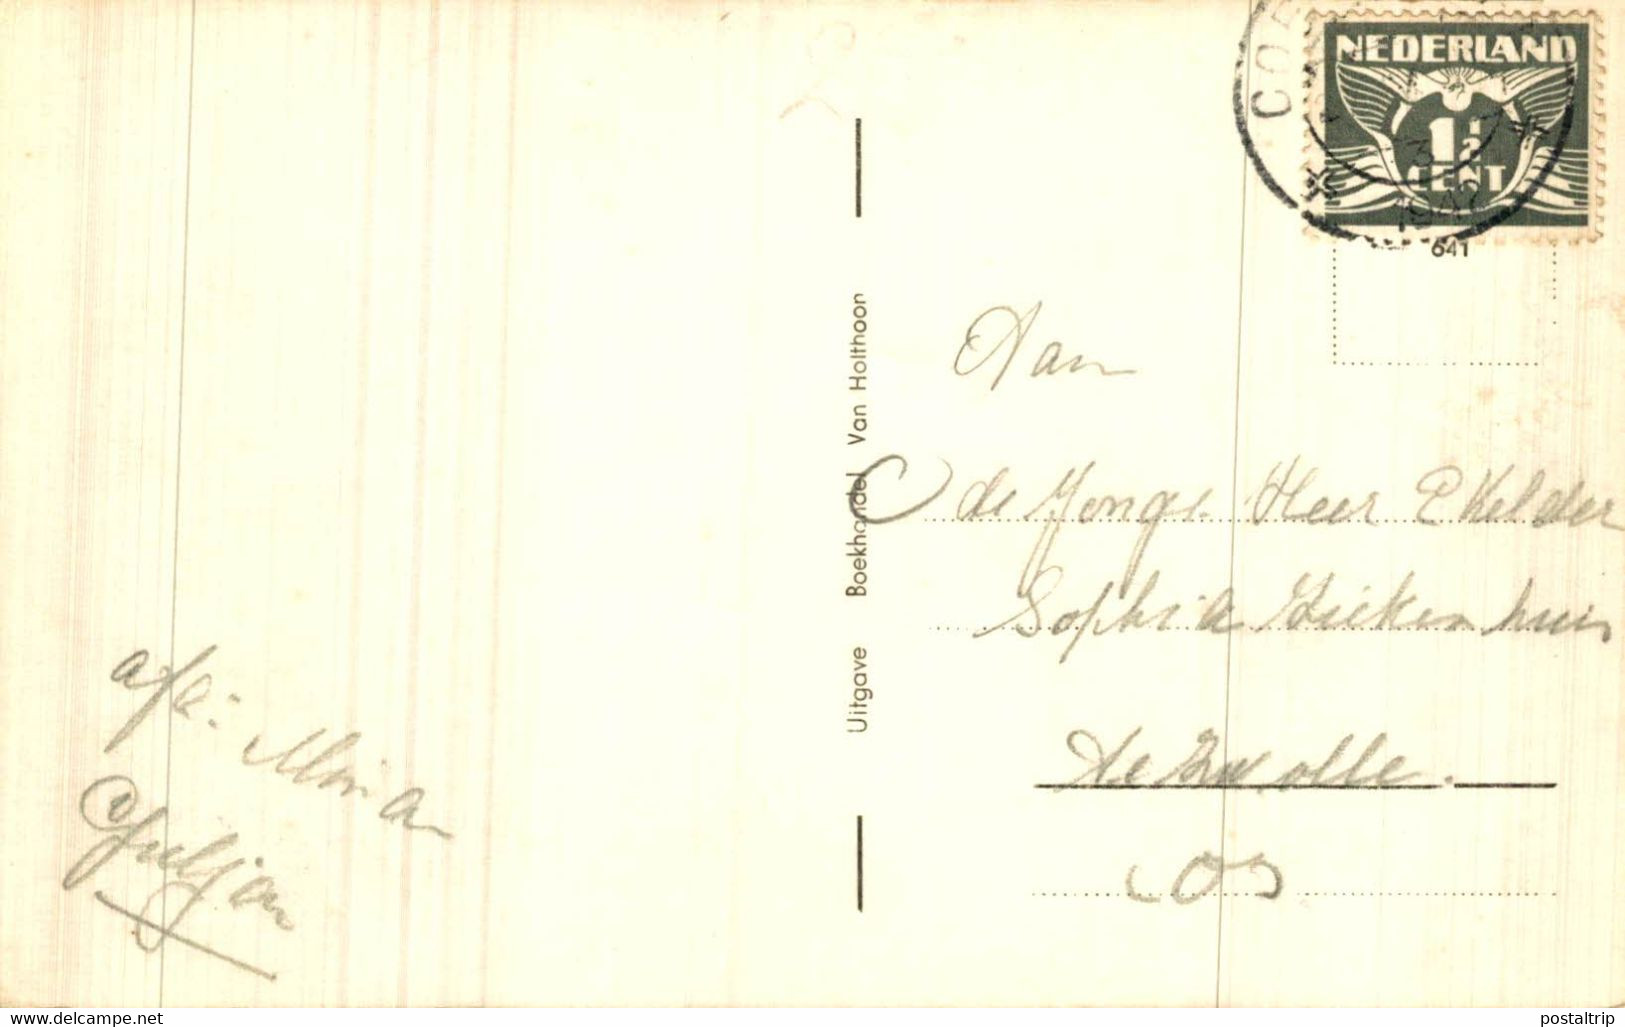 NEDERLAND
1½
CENT
3
1942
641
Uitgave Boekhandel Van Holthoon
Aan
de Jonge Heer E Kelder
Sophia Ziekenhuis
te Zwolle.
afz: Mina
www.delcampe.net
postaltrip